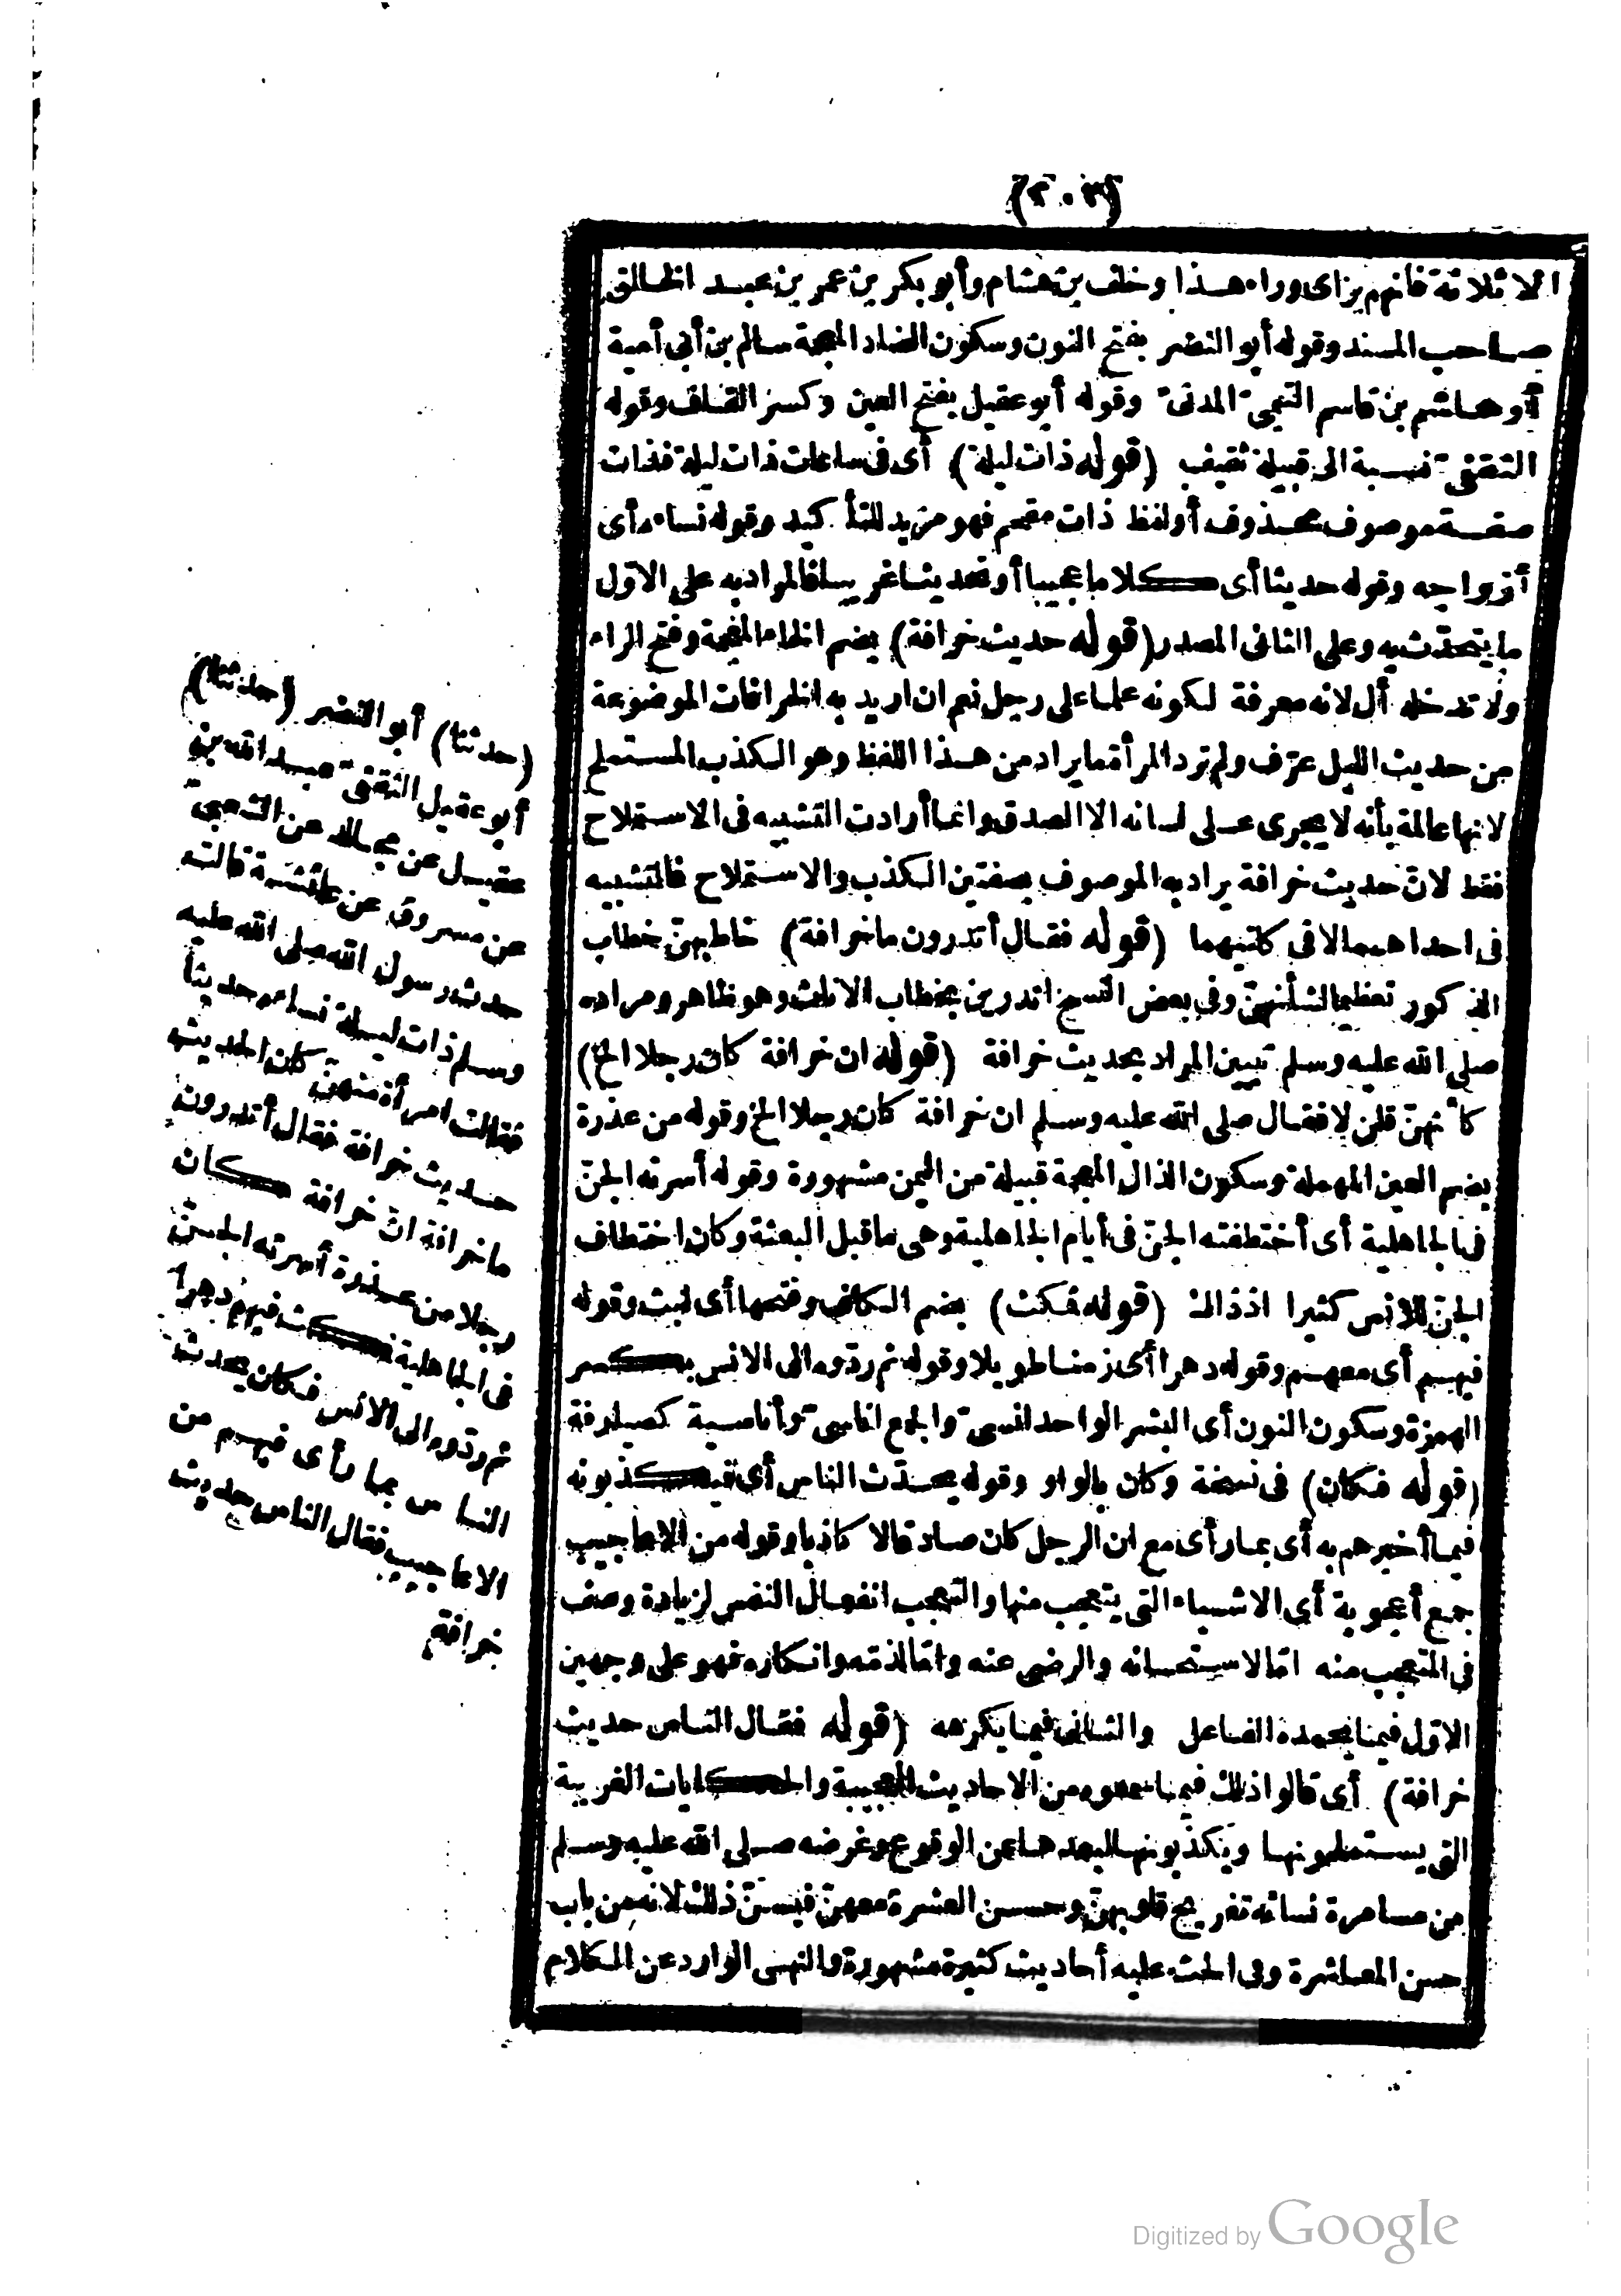 (٢٠٣)
الا ثلاثة فانهم بزاى وراء هذا وخلف بن هشام وأبو بكر بن عمر بن عبد الخالق
صاحب المسند وقوله أبو النضر بفتح النون وسكون الضاد المعجمة سالم بن أبى أمية
أو هاشم بن قاسم التيمىّ المدنىّ وقوله أبو عقيل بفتح العين وكسر القاف وقوله
الثقفىّ نسبة الى قبيلة ثقيف (قوله ذات ليلة) أى فى ساعات ذات ليلة فذات
صفة موصوف محذوف أولفظ ذات مقحم فهو مزيد للتأكيد وقوله نساءه أى
أزواجه وقوله حديثا أى كلاما عجيبا أو تحديثا غريبا فالمراد به على الاوّل
ما يتحدّث به وعلى الثانى المصدر (قوله حديث خرافة) بضم الخاء المعجمة وفتح الراء
ولا تدخله أل لانه معرفة لكونه علما على رجل نعم ان اريد به الخرافات الموضوعة
من حديث الليل عرّف ولم ترد المرأة ما يراد من هذا اللفظ وهو الكذب المستملح
لانها عالمة بأنه لا يجرى على لسانه الا الصدق وانما أرادت التشبيه فى الاستملاح
فقط لانّ حديث خرافة يراد به الموصوف بصفتين الكذب والاستملاح فالتشبيه
فى احداهما لا فى كلتيهما (قوله فقال أتدرون ما خرافة) خاطبهنّ خطاب
الذكور تعظيما لشأنهنّ وفى بعض النسخ اتدرين بخطاب الاناث وهو ظاهر ومراده
صلى الله عليه وسلم تبيين المراد بحديث خرافة (قوله ان خرافة كان رجلا الخ)
كأنهنّ قلن لا فقال صلى الله عليه وسلم ان خرافة كان رجلا الخ وقوله من عذرة
بضم العين المهملة وسكون الذال المعجمة قبيلة من اليمن مشهورة وقوله أسرته الجنّ
فى الجاهلية أى أختطفته الجنّ فى أيام الجاهلية وهى ما قبل البعثة وكان اختطاف
الجنّ للانس كثيرا اذ ذاك (قوله فمكث) بضم الكاف وفتحها أى لبث وقوله
فيهم أى معهم وقوله دهرا أى زمنا طويلا وقوله ثم ردّوه الى الانس بكسر
الهمزة وسكون النون أى البشر الواحد انسىّ والجمع اناسىّ وأناسية كصيارفة
(قوله فكان) فى نسخة وكان بالواو وقوله يحدّث الناس أى فيكذبونه
فيما أخبرهم به أى بما رأى مع ان الرجل كان صادقا لا كاذبا وقوله من الاعاجيب
جمع أعجوبة أى الاشياء التى يتعجب منها والتعجب انفعال النفس لزيادة وصف
فى المتعجب منه امّا لاستحسانه والرضى عنه وامّا لذمّه وانكاره فهو على وجهين
الاوّل فيما يحمده الفاعل والثانى فيما يكرهه (قوله فقال الناس حديث
خرافة) أى قالوا ذلك فيما سمعوه من الاحاديث العجيبة والحكايات الغريبة
التى يستملحونها ويكذّبونها لبعدها عن الوقوع وغرضه صلى الله عليه وسلم
من مسامرة نسائه تفريح قلوبهنّ وحسن العشرة معهنّ فيسنّ ذلك لانه من باب
حسن المعاشرة وفى الحث عليه أحاديث كثيرة مشهورة والنهى الوارد عن الكلام
(حدثنا) أبو النضر (حدثنا)
أبو عقيل الثقفىّ عبد الله بن
عقيل عن مجالد عن الشعبىّ
عن مسروق عن عائشة قالت
حدث رسول الله صلى الله عليه
وسلم ذات ليلة نساءه حديثا
فقالت امرأة منهنّ كان الحديث
حديث خرافة فقال أتدرون
ما خرافة انّ خرافة كان
رجلا من عذرة أسرته الجنّ
فى الجاهلية فمكث فيهم دهرا
ثم ردّوه الى الانس فكان يحدث
الناس بما رأى فيهم من
الاعاجيب فقال الناس حديث
خرافة
Digitized by Google